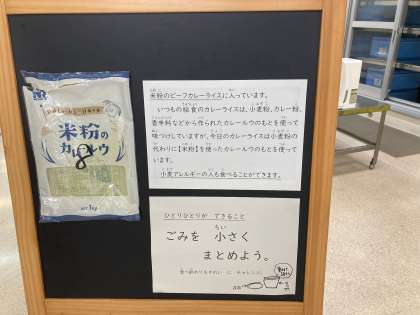 米粉の
カレールウ
8
1kg
米粉のビーフカレーライスに入っています。
いつもの給食のカレーライスは、小麦粉、カレー粉、
香辛料などから作られたカレールウのもとを使って
味つけしていますが、今日のカレーライスは小麦粉の
代わりに【米粉】を使ったカレールウのもとを使ってい
ます。
小麦アレルギーの人も食べることができます。
ひとりひとりが できること
ごみを 小さく
まとめよう。